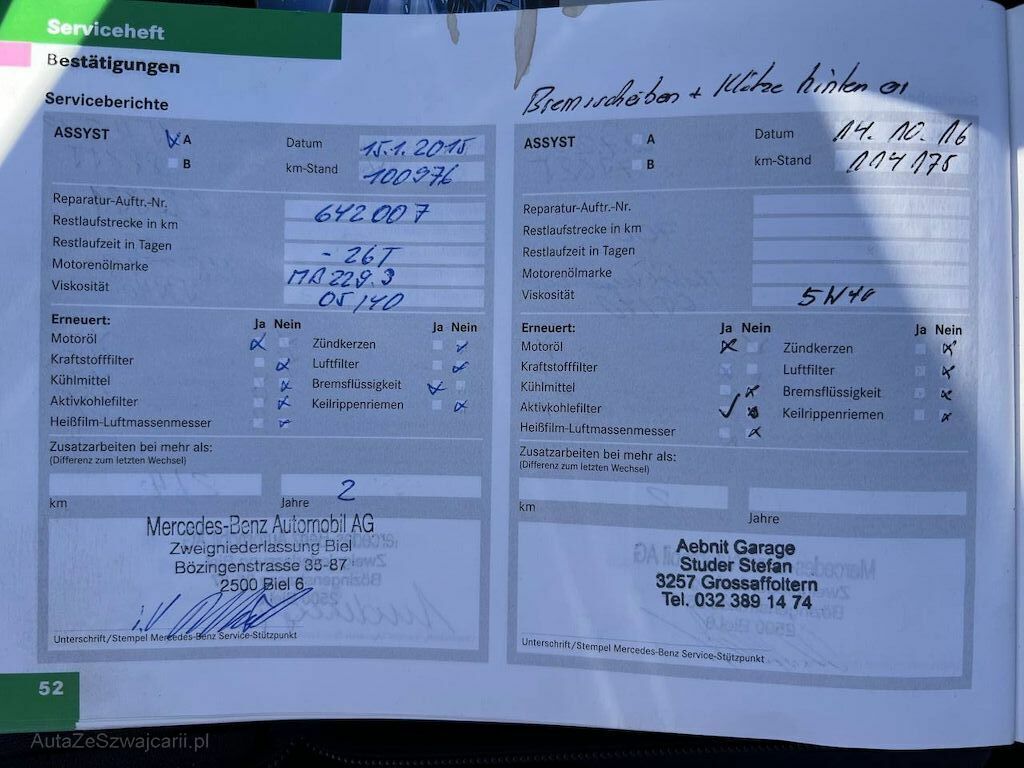 Serviceheft
Bestätigungen
Serviceberichte
ASSYST
A
B
Datum 15.1.2015
km-Stand 100976
Reparatur-Auftr.-Nr. 642007
Restlaufstrecke in km
Restlaufzeit in Tagen - 26T
Motorenölmarke MB 229.3
Viskosität 05/40
Erneuert:
Ja Nein
Ja Nein
Motoröl
Zündkerzen
Kraftstofffilter
Luftfilter
Kühlmittel
Bremsflüssigkeit
Aktivkohlefilter
Keilrippenriemen
Heißfilm-Luftmassenmesser
Zusatzarbeiten bei mehr als:
(Differenz zum letzten Wechsel)
2
km
Jahre
Mercedes-Benz Automobil AG
Zweigniederlassung Biel
Bözingenstrasse 35-87
2500 Biel 6
i.V
Unterschrift/Stempel Mercedes-Benz Service-Stützpunkt
52
Bremsscheiben + Klötze hinten er
ASSYST
A
B
Datum 14.10.16
km-Stand 114175
Reparatur-Auftr.-Nr.
Restlaufstrecke in km
Restlaufzeit in Tagen
Motorenölmarke
Viskosität 5W40
Erneuert:
Ja Nein
Ja Nein
Motoröl
Zündkerzen
Kraftstofffilter
Luftfilter
Kühlmittel
Bremsflüssigkeit
Aktivkohlefilter
Keilrippenriemen
Heißfilm-Luftmassenmesser
Zusatzarbeiten bei mehr als:
(Differenz zum letzten Wechsel)
km
Jahre
Aebnit Garage
Studer Stefan
3257 Grossaffoltern
Tel. 032 389 14 74
Unterschrift/Stempel Mercedes-Benz Service-Stützpunkt
AutaZeSzwajcarii.pl